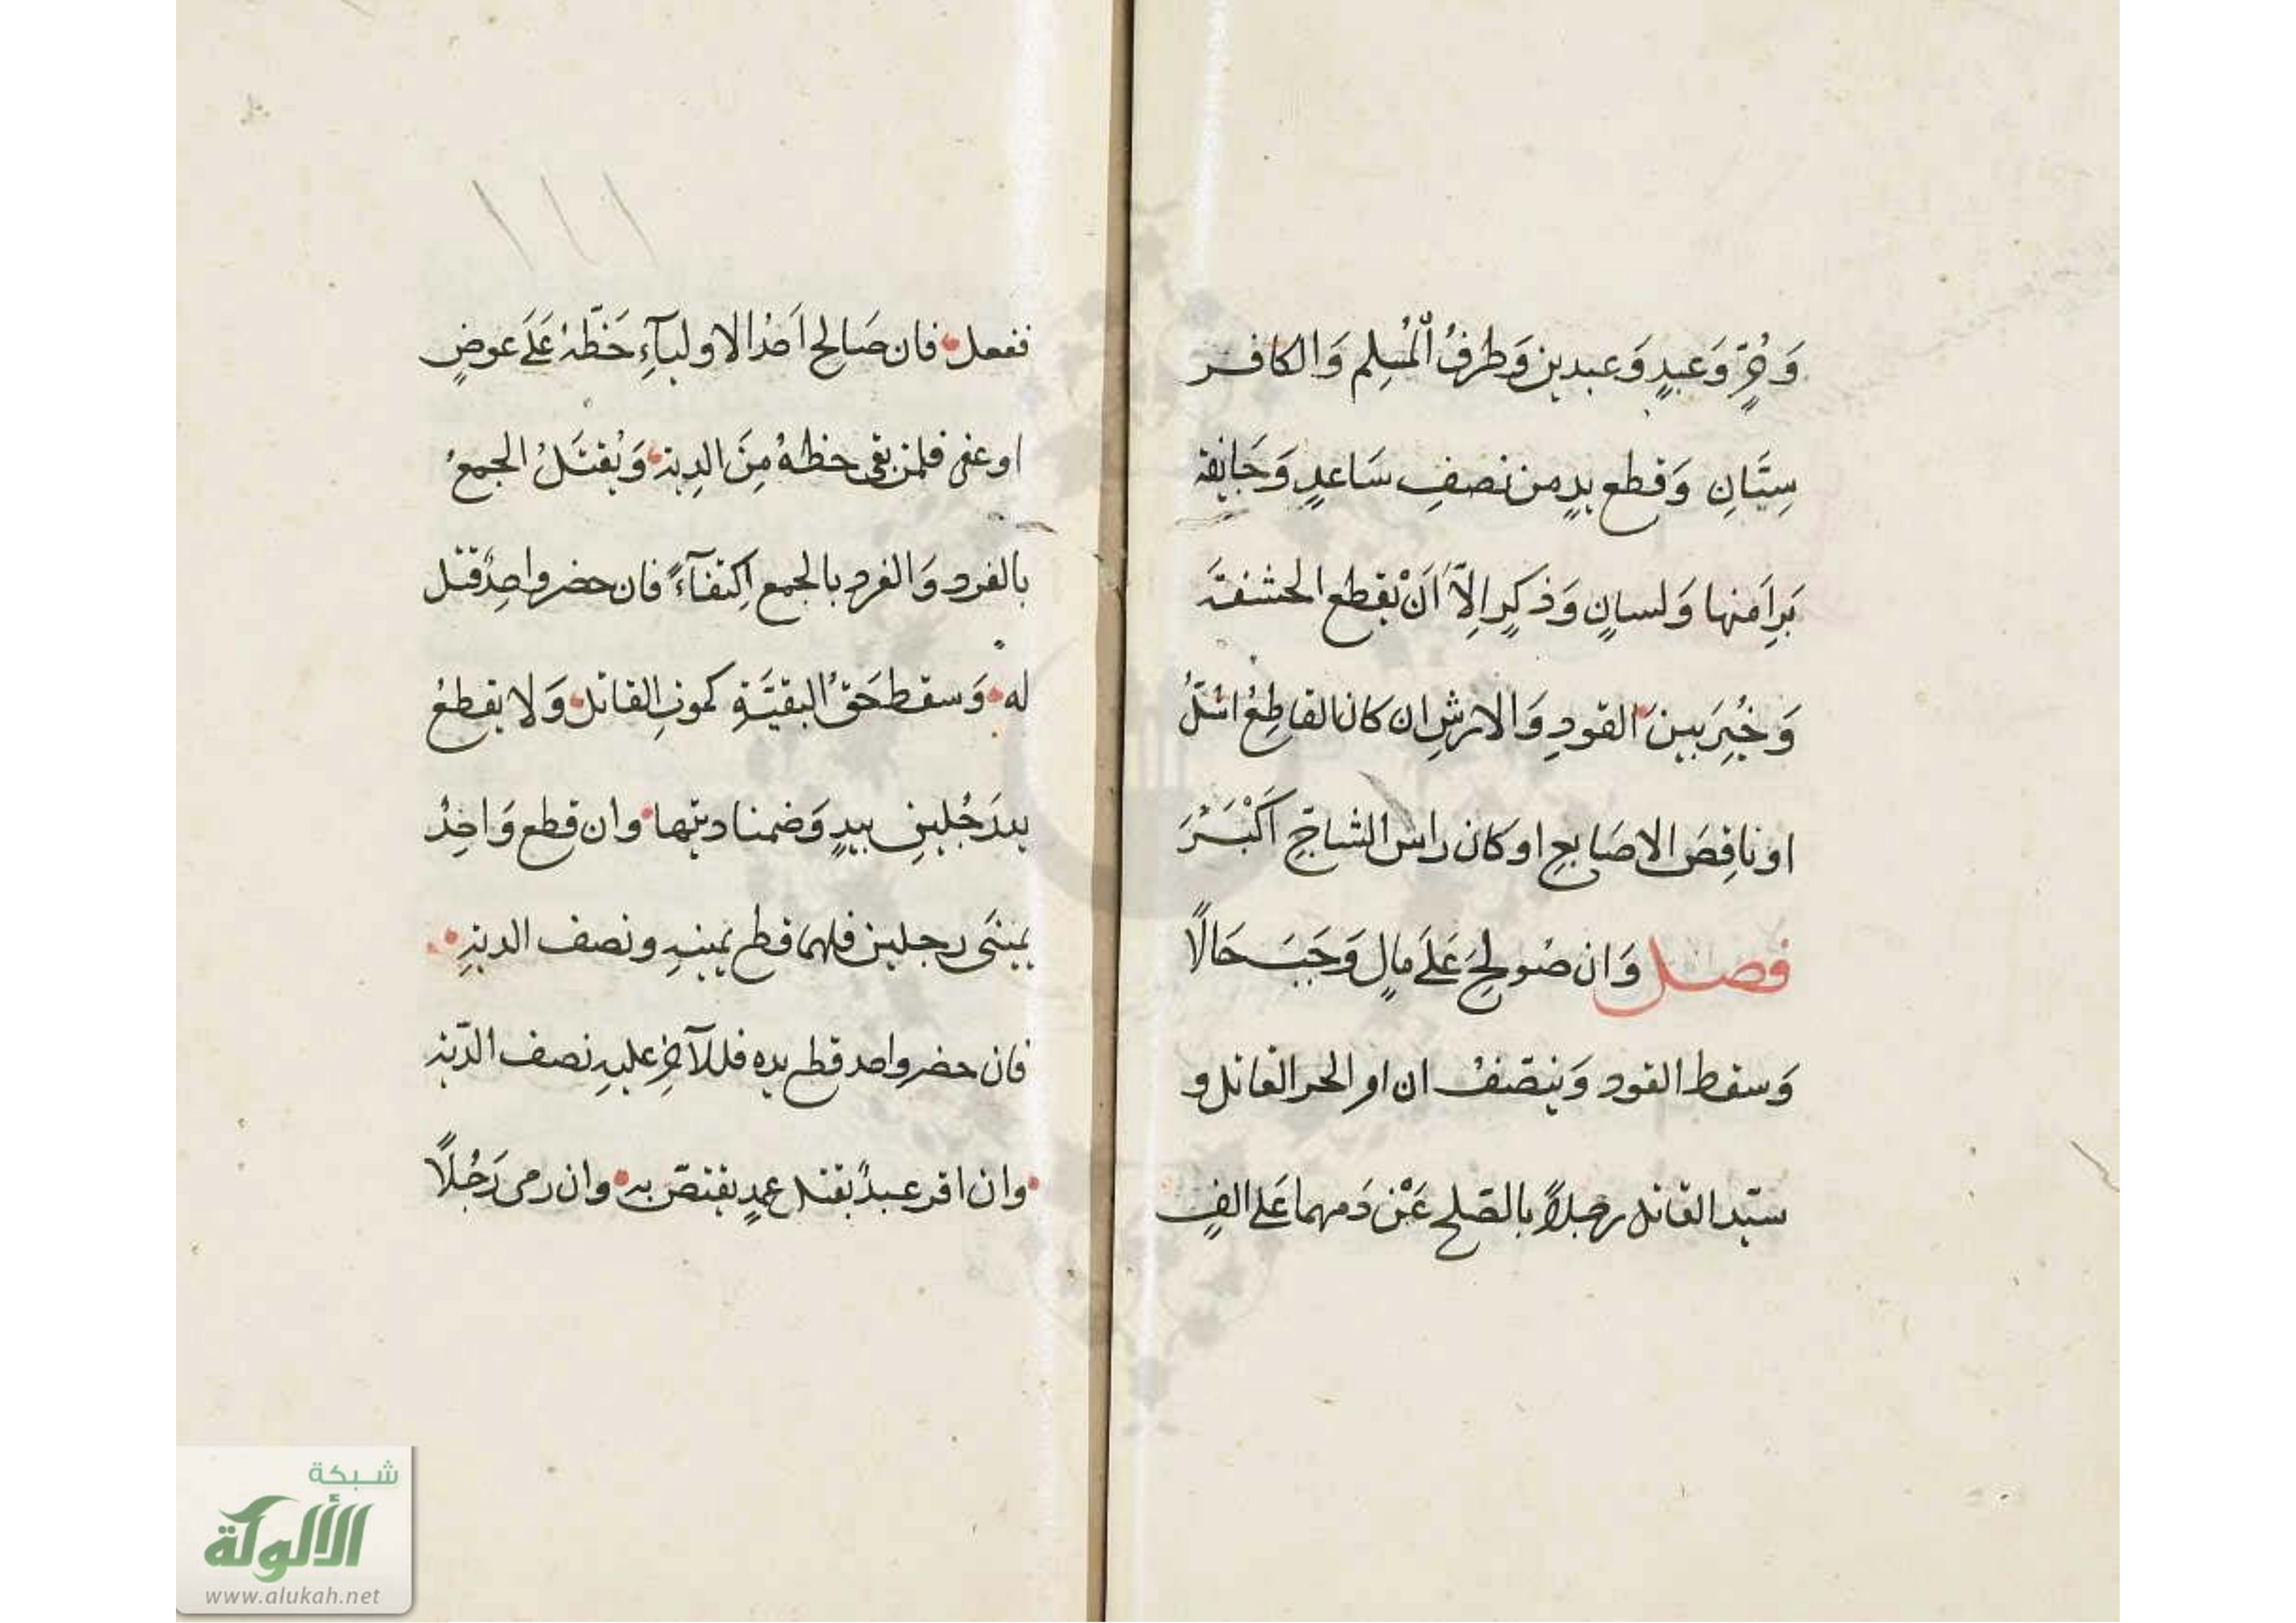 وَحُرٍّ وَعَبدٍ وَعبدين وَطرفُ الْمُسلِم وَالكافر
سِيَّانِ وَقطع يدٍ من نصفِ سَاعدٍ وَجَايفة
بَرِأَمنها وَلسانٍ وَذكرٍ اِلاَّ اَنْ يقطع الحشفَةَ
وَخُيِّرَ بين القودِ وَالارشِ ان كان القاطِعُ اشلَّ
او ناقِصَ الاصَابعِ او كان راس الشاجّ اَكْبَرَ
فصل وَان صُولحَ عَلَى مالٍ وَجَبَ حَالًا
وَسقط القود وَيتنصّفُ ان امر الحر القاتل و
سيّد القاتل رجلاً بالصّلح عَنْ دَمهما عَلى الفٍ
ففعل فان صَالح اَحدُ الاوليآءِ حَظّهُ عَلَى عوضٍ
او عفى فلمن بقى حظهُ مِنَ الدِية وَيُقتَلُ الجمعُ
بالفرد وَالفرد بالجمع اِكتفآءً فان حضر واحِدٌ قتل
له وَسقط حَقُّ البقيَّةِ كموتِ القاتل وَلا يقطعُ
يد رَجُلينِ بيدٍ وَضمنا ديتها وان قطع وَاحِدٌ
يمينَى رجلين فلهما قطع يمينهِ ونصف الديةِ
فان حضر واحد قطع يده فللآخِرِ عليهِ نصف الدّية
وان اقر عبدٌ بقتل عمدٍ يقتصّ بهِ وان رمى رَجُلًا
١١١
شبكة
الألوكة
www.alukah.net